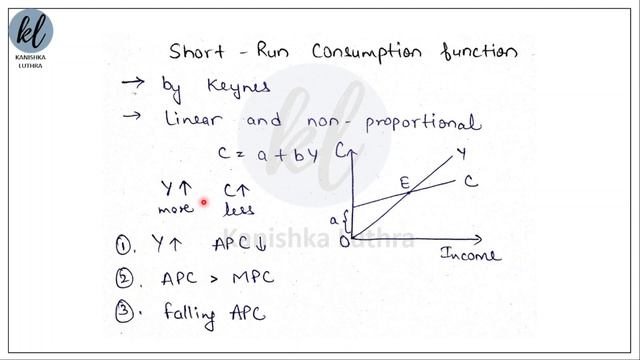 kl
KANISHKA
LUTHRA
Short - Run Consumption function
→ by Keynes
→ Linear and non-proportional
C = a + bY
C
Y
C
E
a
O
Income
Y↑ C↑
more less
①. Y↑ APC↓
②. APC > MPC
③. falling APC
kl
Kanishka Luthra